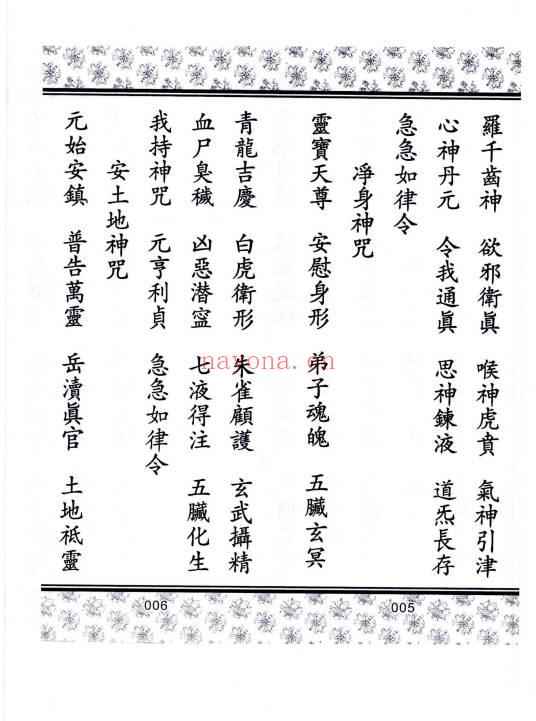 羅千齒神 欲邪衛眞 喉神虎賁 氣神引津
心神丹元 令我通眞 思神鍊液 道炁長存
急急如律令
淨身神咒
靈寶天尊 安慰身形 弟子魂魄 五臟玄冥
青龍吉慶 白虎衛形 朱雀顧護 玄武攝精
血尸臭穢 凶惡潛寍 七液得注 五臟化生
我持神咒 元亨利貞 急急如律令
安土地神咒
元始安鎮 普告萬靈 岳瀆眞官 土地祇靈
005
006
nayona.cn